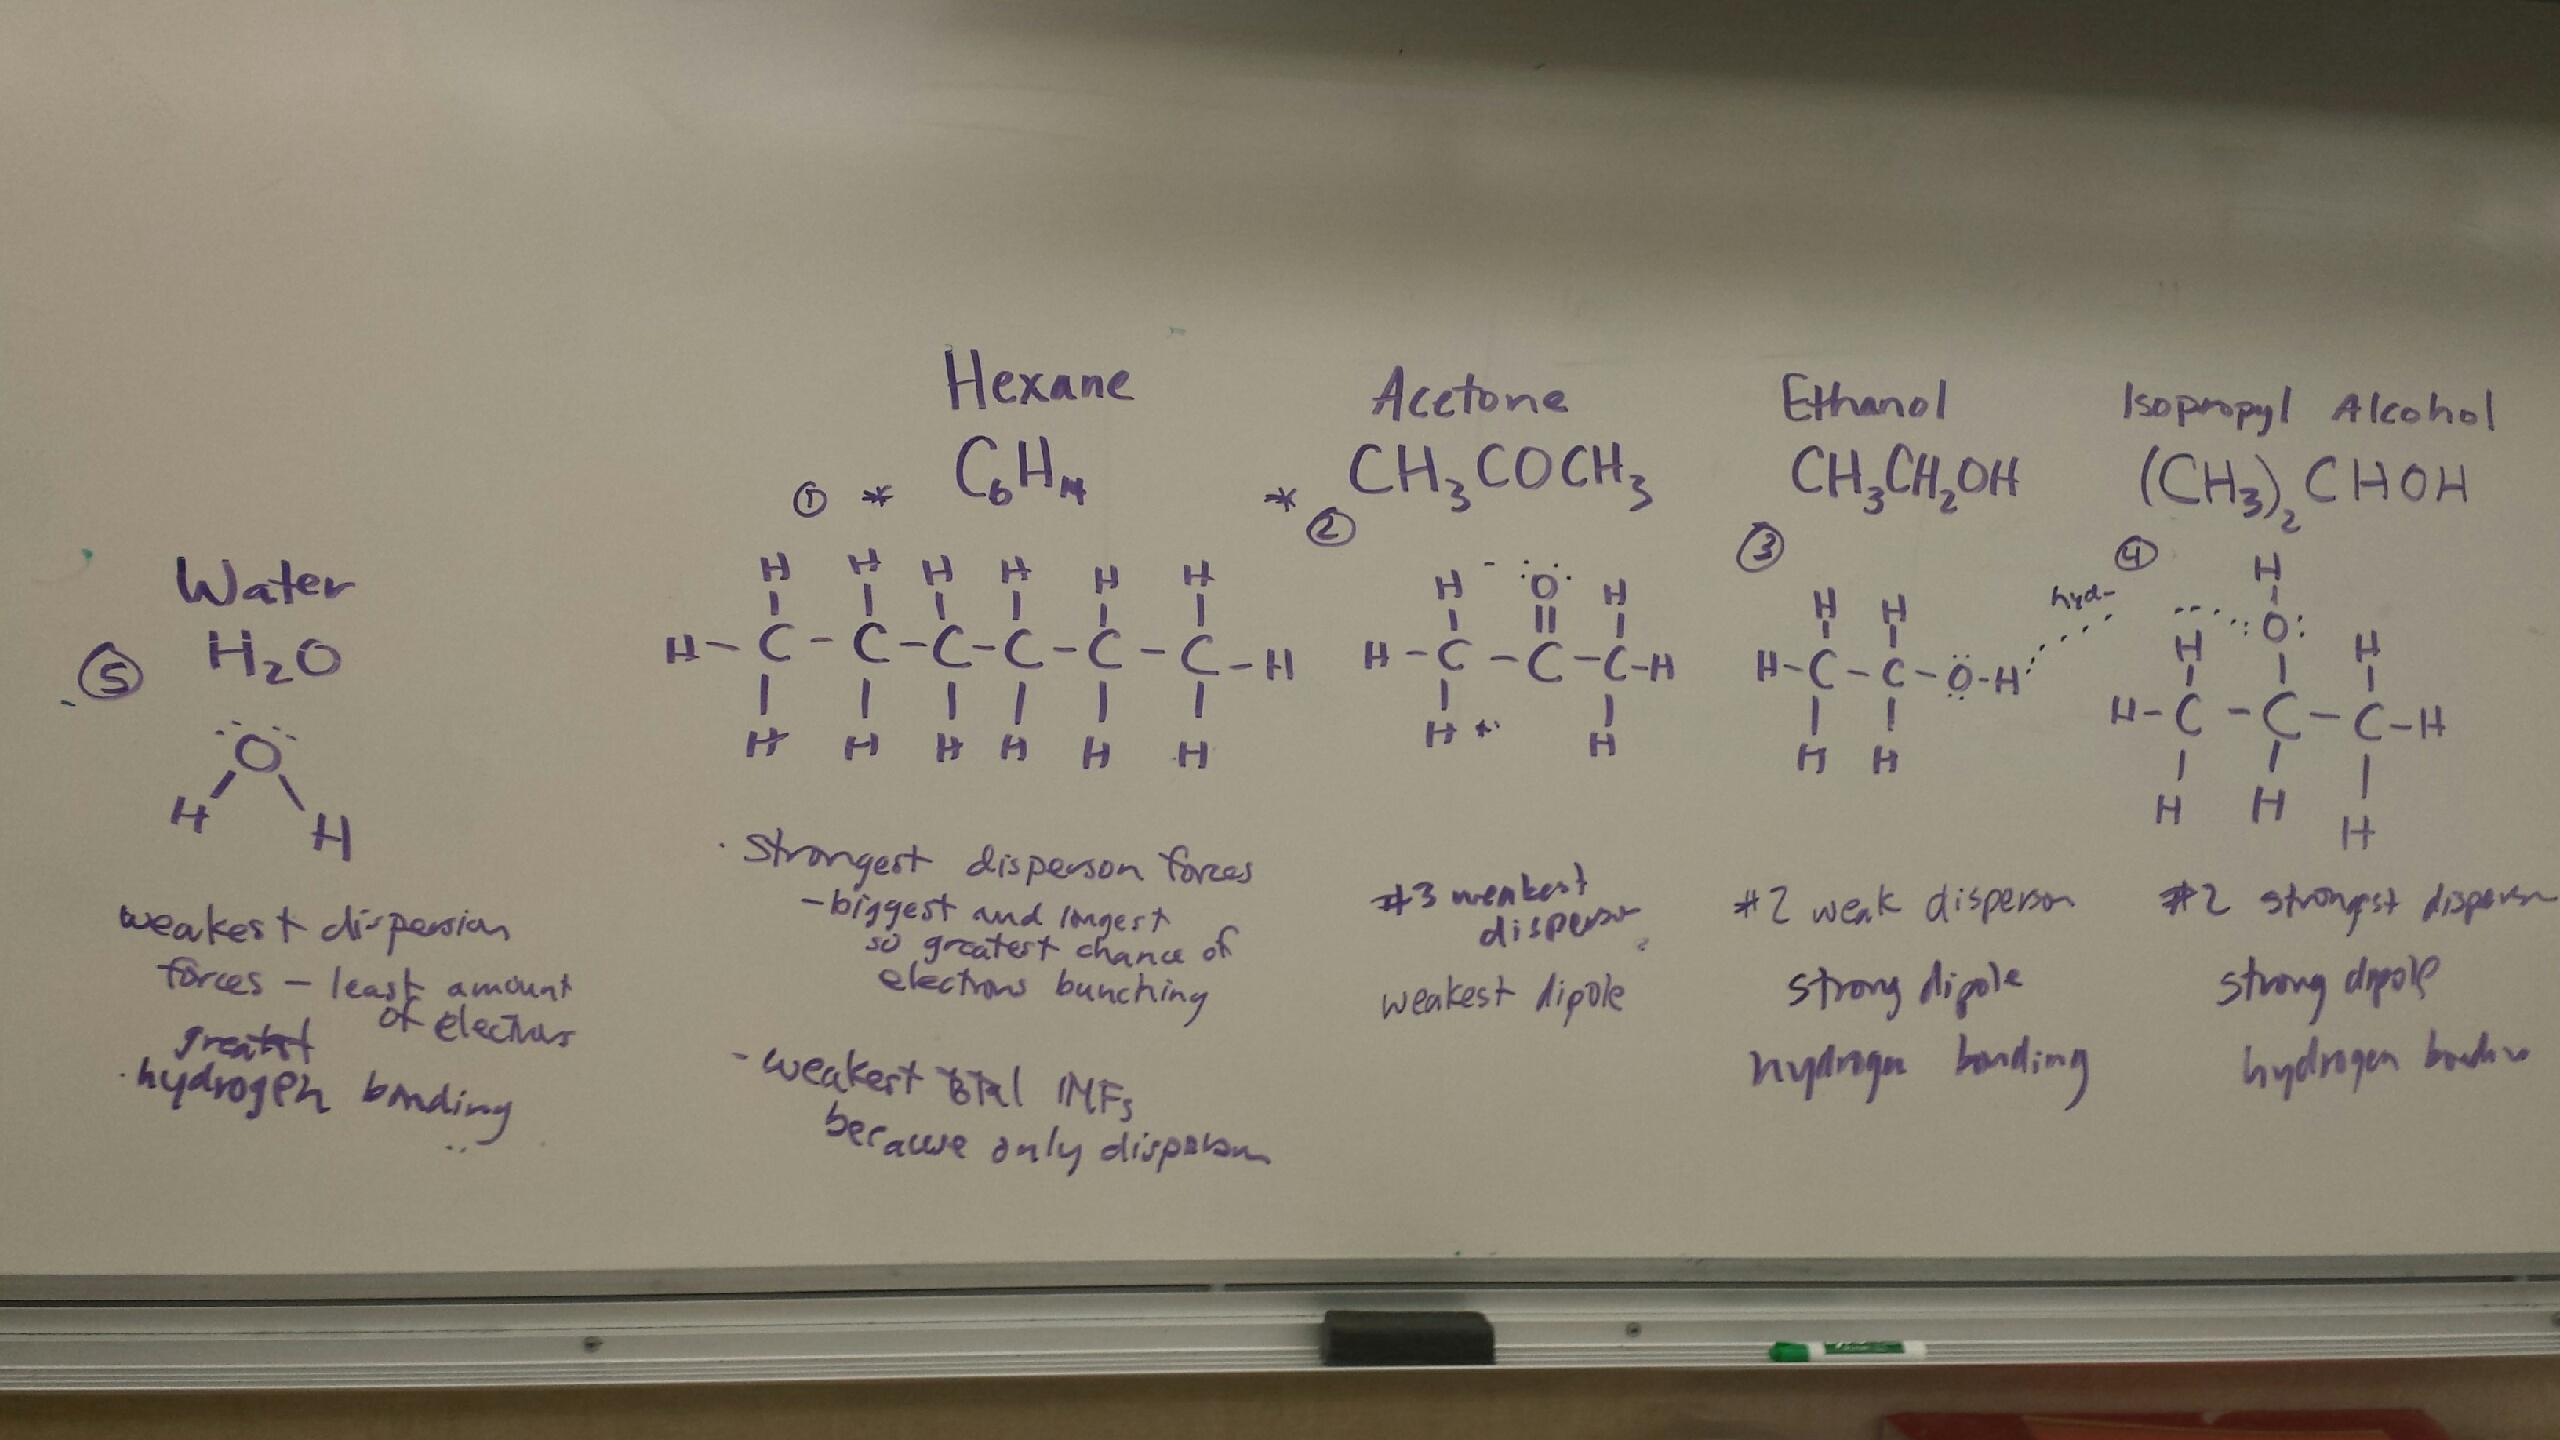 Water
H₂O
⑤
O
H H
weakest dispersion
forces – least amount
of electrons
greatest
· hydrogen bonding
Hexane
C₆H₁₄
① *
H H H H H H
H – C – C – C – C – C – C – H
H H H H H H
· Strongest disperson forces
– biggest and longest
so greatest chance of
electrons bunching
- weakest total IMFs
because only dispersion
Acetone
CH₃COCH₃
* ②
H - O H
H – C – C – C – H
H + H
#3 weakest
dispersion
weakest dipole
Ethanol
CH₃CH₂OH
③
H H
H – C – C – O – H
H H
hyd-
#2 weak disperson
strong dipole
hydrogen bonding
Isopropyl Alcohol
(CH₃)₂CHOH
④
H
O
H H
H – C – C – C – H
H H H
#2 strongest dispersion
strong dipole
hydrogen bonding